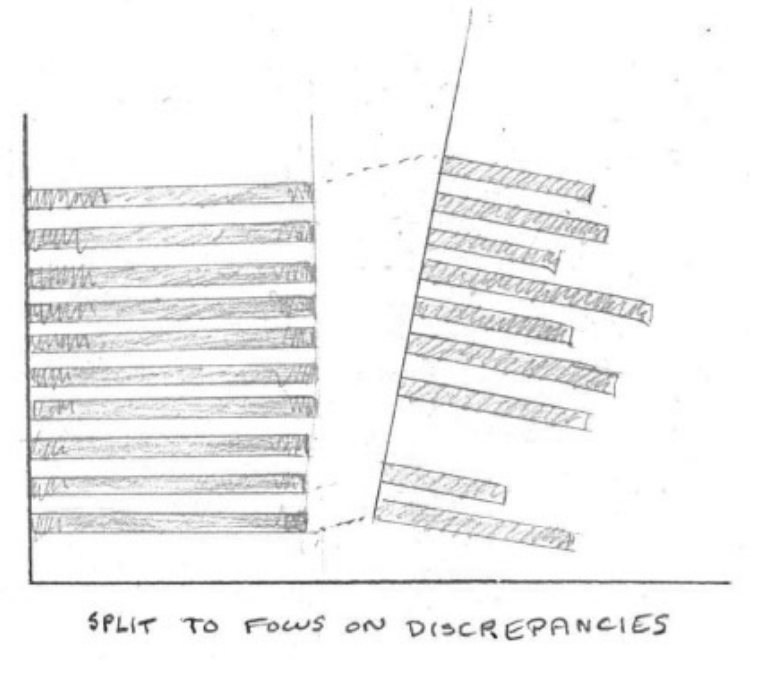 SPLIT TO FOCUS ON DISCREPANCIES